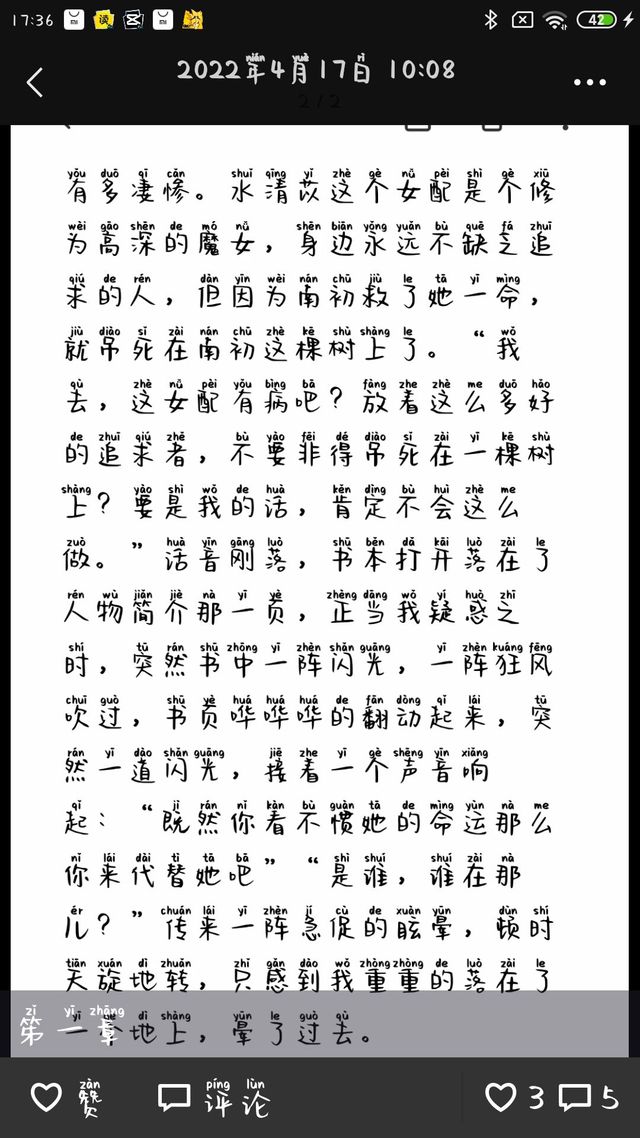 17:36
42
2022年4月17日 10:08
2 / 2
有多凄惨。水清苡这个女配是个修
为高深的魔女，身边永远不缺乏追
求的人，但因为南初救了她一命，
就吊死在南初这棵树上了。“我
去，这女配有病吧？放着这么多好
的追求者，不要非得吊死在一棵树
上？要是我的话，肯定不会这么
做。”话音刚落，书本打开落在了
人物简介那一页，正当我疑惑之
时，突然书中一阵闪光，一阵狂风
吹过，书页哗哗哗的翻动起来，突
然一道闪光，接着一个声音响
起：“既然你看不惯她的命运那么
你来代替她吧”“是谁，谁在那
儿？”传来一阵急促的眩晕，顿时
天旋地转，只感到我重重的落在了
一个地上，晕了过去。
第一章
赞
评论
3
5